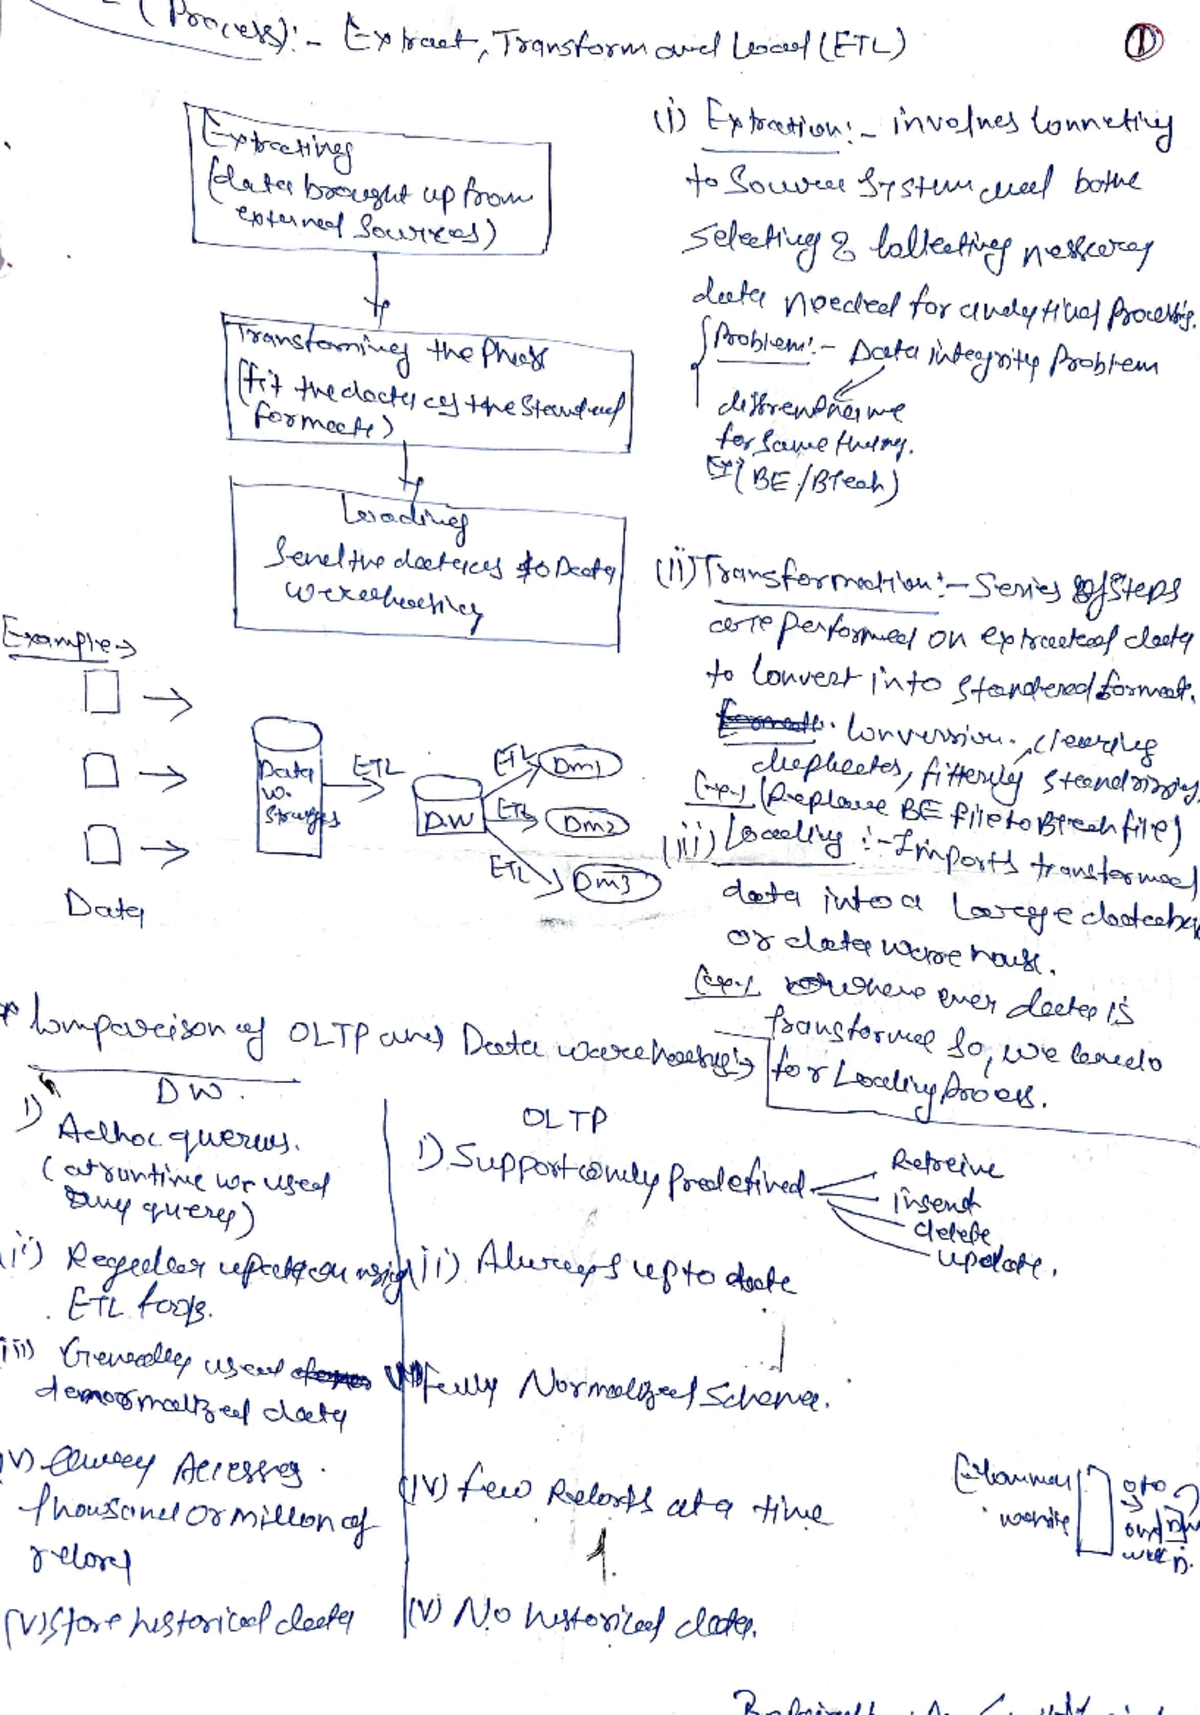 (Process):- Extract, Transform and Load (ETL)
①
Extracting
(data brought up from
external sources)
Transforming the Phase
(fit the data as the standard
formate)
Loading
Send the data to Data
warehousing
Example →
Data
Data
w.
Storages
ETL
DW
ETL Dm1
ETL Dm2
ETL Dm3
(i) Extraction:- involves connecting
to Source System and bothe
Selecting & Collecting
data needed for analytical Processing.
Problem:- Data integrity Problem
different name
for same thing.
Ex (BE/Btech)
(ii) Transformation:- Series of Steps
are performed on extracted data
to convert into standered format.
Conversion, clearing
duplicates, filtering
(Exp-) (Replace BE file to Btech file)
(iii) Loading :- Imports transformed
data into a Large
or data warehouse.
(Exp-) where ever data is
transformed so, we
for Loading Process.
* Comparison of OLTP and Data warehousing →
DW.
i) Adhoc querys.
(at runtime we used
any query)
ii) Regular updation using
ETL tools.
iii) Generally used
denormalized data
Accesses
thousand or million of
record
(V) Store historical data
OLTP
i) Support only Predefined
Retreive
insert
delete
update.
ii) Always up to date
Fully Normalized Schema.
(iv) few Records at a time
(V) No historical data.